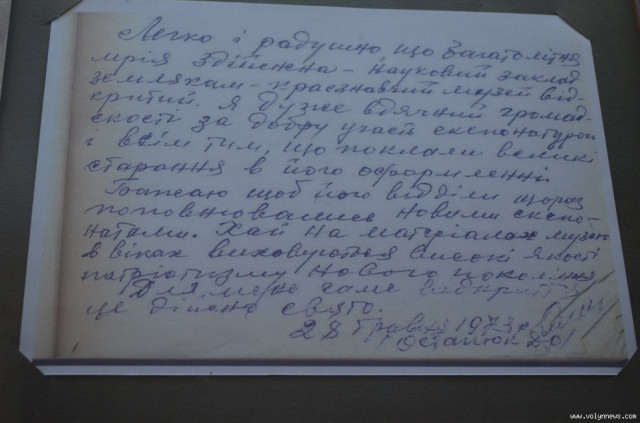 Легко і радушно що багатолітня
мрія здійснена - науковий заклад
землякам - краєзнавчий музей від-
критий. Я дуже вдячний громад-
скості за добру участ експонатурою
і всім тим, що поклали великі
старання в його оформленні.
Бажаю щоб його відділи щораз
поповнювались новими експо-
натами. Хай на матеріалах музею
в віках виховуються високі якості
патріотизму нового покоління
Для мене саме відкриття
це дійсно свято.
28 травня 1973 р.
/ Остапюк
www.volynnews.com